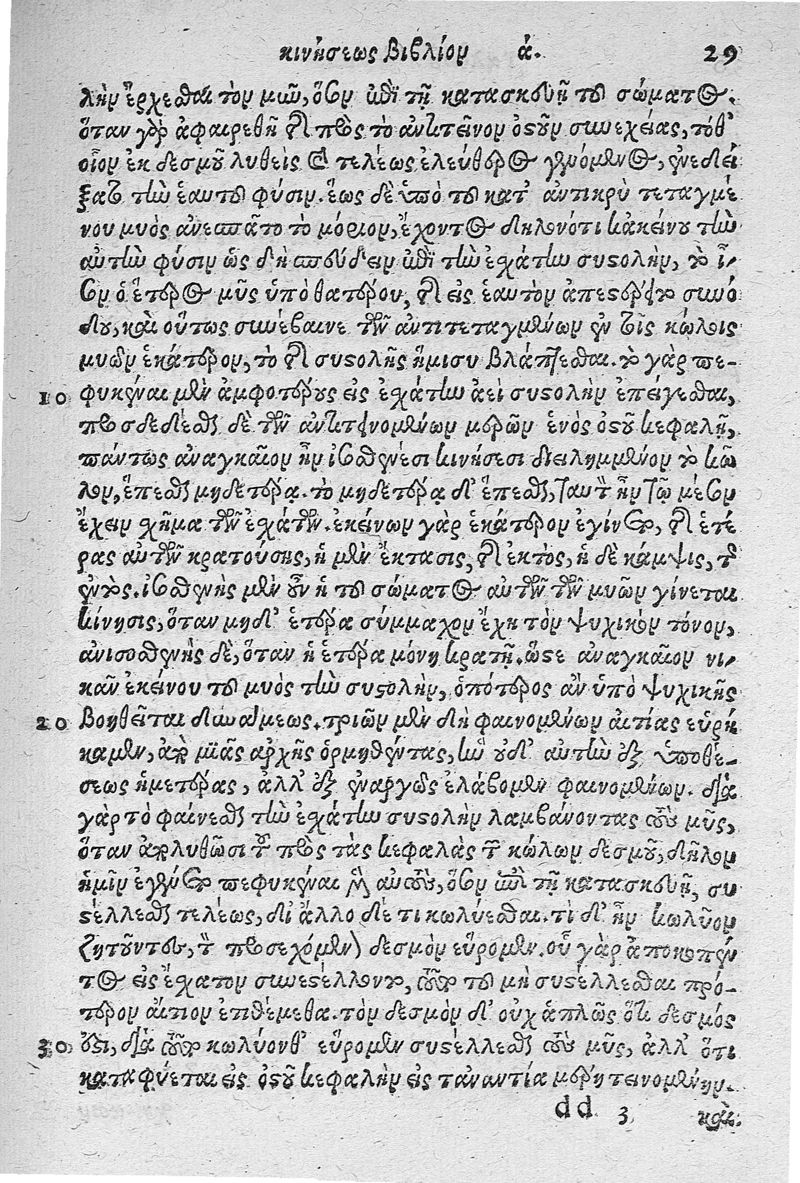 κινήσεως βιβλίον ά. 29
λὴν ἔρχεσθαι τὸν μῦν, ὅσον ἐπὶ τῇ κατασκευῇ τοῦ σώματος.
ὅταν γὰρ ἀφαιρεθῇ τῆς πρὸς τὸ ἀντιτεῖνον ὀστοῦν συνεχείας, τόθ'
οἷον ἐκ δεσμοῦ λυθεὶς καὶ τελέως ἐλεύθερος γενόμενος, ἐνεδεί
ξατο τὴν ἑαυτοῦ φύσιν. ἕως δὲ ὑπὸ τοῦ κατ' ἀντικρὺ τεταγμέ
νου μυὸς ἀνεσπᾶτο τὸ μόριον, ἔχοντος δηλονότι κἀκείνου τὴν
αὐτὴν φύσιν ὡς δὴ σπεύδειν ἐπὶ τὴν ἐσχάτην συστολὴν, τὸ ἴ-
σον ὁ ἕτερος μῦς ὑπὸ θατέρου, τῆς εἰς ἑαυτὸν ἀπεστέρητο συνό
δου, καὶ οὕτως συνέβαινε τῶν ἀντιτεταγμένων ἐν τοῖς κώλοις
μυῶν ἑκάτερον, τὸ τῆς συστολῆς ἥμισυ βλάπτεσθαι. τὸ γὰρ πε-
10 φυκέναι μὲν ἀμφοτέρους εἰς ἐσχάτην ἀεὶ συστολὴν ἐπείγεσθαι,
προσδεδέσθαι δὲ τῶν ἀντιτεινομένων μερῶν ἑνὸς ὀστοῦ κεφαλῇ,
πάντως ἀναγκαῖον ἦν ἰσοσθενέσι κινήσεσι διειλημμένον τὸ κῶ
λον, ἕπεσθαι μηδετέρᾳ. τὸ μηδετέρᾳ δ' ἕπεσθαι, ταυτὸν ἦν τῷ μέσον
ἔχειν σχῆμα τῶν ἐσχάτων. ἐκείνων γὰρ ἑκάτερον ἐγίνετο, τῆς ἑτέ
ρας αὐτῶν κρατούσης, ἡ μὲν ἔκτασις, τῆς ἐκτὸς, ἡ δὲ κάμψις, τῆς
ἐντός. ἰσοσθενὴς μὲν οὖν ἡ τοῦ σώματος αὐτῶν τῶν μυῶν γίνεται
κίνησις, ὅταν μηδ' ἑτέρα σύμμαχον ἔχῃ τὸν ψυχικὸν τόνον,
ἀνισοσθενὴς δὲ, ὅταν ἡ ἑτέρα μόνη κρατῇ. ὥστε ἀναγκαῖον νι-
κᾶν ἐκείνου τοῦ μυὸς τὴν συστολὴν, ὁπότερος ἂν ὑπὸ ψυχικῆς
20 βοηθεῖται δυνάμεως. τριῶν μὲν δὴ φαινομένων αἰτίας εὑρή
καμεν, ἀπὸ μιᾶς ἀρχῆς ὁρμηθέντας, ἣν οὐδ' αὐτὴν ἐξ ὑποθέ-
σεως ἡμετέρας, ἀλλ' ἐξ ἐναργῶς ἐλάβομεν φαινομένων. διὰ
γὰρ τὸ φαίνεσθαι τὴν ἐσχάτην συστολὴν λαμβάνοντας τοὺς μῦς,
ὅταν ἀπολυθῶσι τοῦ πρὸς τὰς κεφαλὰς τῶν κώλων δεσμοῦ, δῆλον
ἡμῖν ἐγένετο πεφυκέναι μὲν αὐτοὺς, ὅσον ἐπὶ τῇ κατασκευῇ, συ
στέλλεσθαι τελέως, δι' ἄλλο δέ τι κωλύεσθαι. τὶ δ' ἦν κωλῦον
ζητοῦντες, τὸν προσεχόμενον δεσμὸν εὕρομεν. οὗ γὰρ ἀποκοπέν
τος εἰς ἔσχατον συνεστέλλοντο, τοῦτο τοῦ μὴ συστέλλεσθαι πρό-
τερον αἴτιον ἐπιθέμεθα. τὸν δεσμὸν δ' οὐχ ἁπλῶς ὅτι δεσμός
30 ἐστι, διὰ τοῦτο κωλύονθ' εὕρομεν συστέλλεσθαι τοὺς μῦς, ἀλλ' ὅτι
καταφύεται εἰς ὀστοῦ κεφαλὴν εἰς τἀναντία μέρη τεινομένην.
dd 3 καὶ